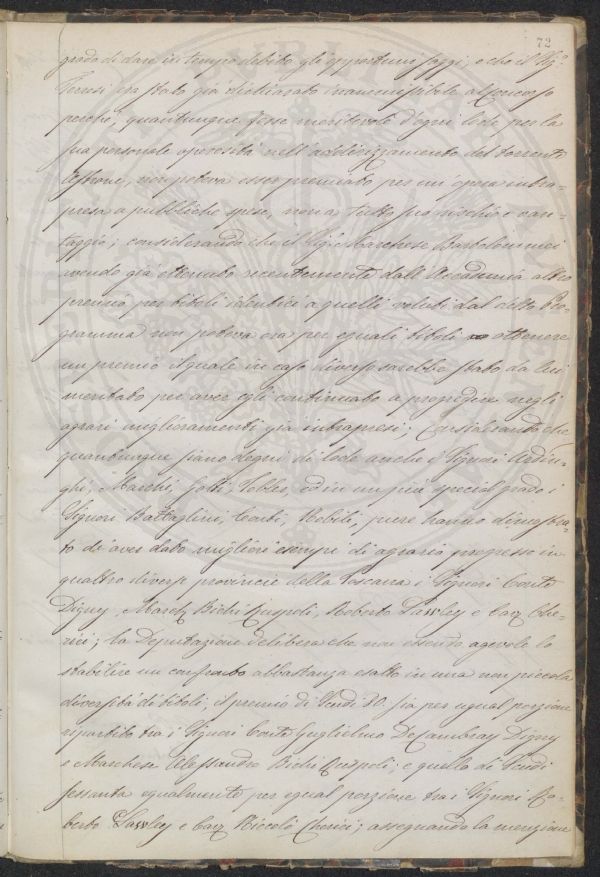 72
grado di dare in tempo debito gli opportuni saggi, e che il Sig.r
era stato già dichiarato inammissibile al Concorso
perché, quantunque fosse meritevole d'ogni lode per la
sua personale operosità nell' del torrente
non poteva esser premiato per un' opera intra-
presa a pubbliche spese, non a tutto suo rischio e van-
taggio; considerando che il Sig.r Marchese Bartolommei
avendo già ottenuto recentemente dall'Accademia altro
premio per titoli identici a quelli voluti dal detto Pro-
gramma non poteva ora per eguali titoli ottenere
un premio il quale in caso diverso sarebbe stato da lui
meritato per aver egli continuato a progredire negli
agrari miglioramenti già intrapresi; Considerando che
quantunque siano degni di lode anche i Signori
ghi, Marchi, ed in un più special grado i
Signori Battaglini, Nobili, pure hanno dimostra-
to di aver dato migliori esempi di agrario progresso in
quattro diverse provincie della Toscana i Signori Conte
Digny, March. Bichi Ruspoli, Roberto Lawley e Cav. Che-
rici; la Deputazione delibera che non essendo agevole lo
stabilire un confronto abbastanza esatto in una non piccola
diversità di titoli, il premio di Scudi 90. sia per ugual porzione
repartito tra i Signori Conte Guglielmo De Cambray Digny
e Marchese Alessandro Bichi Ruspoli; e quello di Scudi
sessanta egualmente per egual porzione tra i Signori Ro-
berto Lawley e Cav. Niccolò Cherici; assegnando la menzione